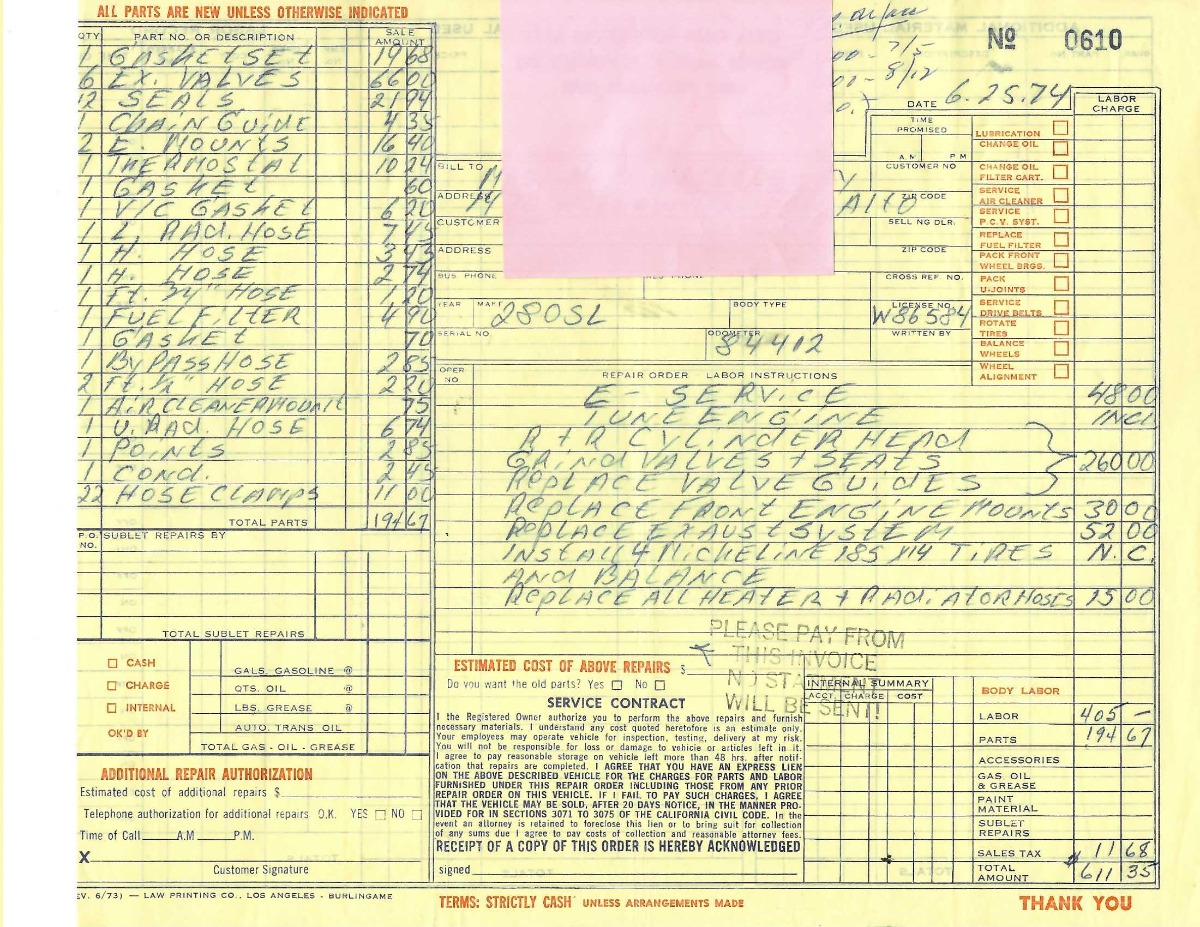 ALL PARTS ARE NEW UNLESS OTHERWISE INDICATED
QTY PART NO. OR DESCRIPTION SALE AMOUNT
1 GASKETSET 19 68
6 EX. VALVES 66 00
12 SEALS 21 94
1 CHAIN GUIDE 4 35
2 E. MOUNTS 16 90
1 THERMOSTAT 10 24
1 GASKET 60
1 V/C GASKET 6 20
1 L. RAD. HOSE 7 45
1 H. HOSE 3 43
1 H. HOSE 2 74
1 Ft. 3/4" HOSE 1,20
1 FUEL FILTER 4 90
1 GASKET 70
1 BY PASS HOSE 2 85
2 Ft. HOSE 2 20
1 AIR CLEANER MOUNT 75
1 U. RAD. HOSE 6 74
1 POINTS 2 85
1 COND. 2 45
22 HOSE CLAMPS 11 00
TOTAL PARTS 194 67
P.O. NO. SUBLET REPAIRS BY
TOTAL SUBLET REPAIRS
CASH
CHARGE
INTERNAL
OK'D BY
GALS. GASOLINE @
QTS. OIL @
LBS. GREASE @
AUTO. TRANS OIL
TOTAL GAS - OIL - GREASE
ADDITIONAL REPAIR AUTHORIZATION
Estimated cost of additional repairs $
Telephone authorization for additional repairs O.K. YES NO
Time of Call A.M P.M.
X
Customer Signature
EV. 6/73) — LAW PRINTING CO., LOS ANGELES - BURLINGAME
7/5
8/12
Nº 0610
DATE 6.25.74
LABOR CHARGE
TIME PROMISED
A.M P M
CUSTOMER NO
BILL TO
ADDRESS
ALTO
ZIP CODE
CUSTOMER
SELLING DLR.
ADDRESS
ZIP CODE
BUS. PHONE
RES. PHONE
CROSS REF. NO.
YEAR MAKE 280SL
BODY TYPE
LICENSE NO. W86584
SERIAL NO
ODOMETER 84412
WRITTEN BY
LUBRICATION
CHANGE OIL
CHANGE OIL FILTER CART.
SERVICE AIR CLEANER
SERVICE P.C.V. SYST.
REPLACE FUEL FILTER
PACK FRONT WHEEL BRGS.
PACK U-JOINTS
SERVICE DRIVE BELTS
ROTATE TIRES
BALANCE WHEELS
WHEEL ALIGNMENT
OPER NO REPAIR ORDER LABOR INSTRUCTIONS
E - SERVICE 48 00
TUNE ENGINE INCL
R + R CYLINDER HEAD
GRIND VALVES + SEATS 260 00
REPLACE VALVE GUIDES
REPLACE FRONT ENGINE MOUNTS 30 00
REPLACE EXAUST SYSTEM 52 00
INSTALL 4 MICHELINE 185 X14 TIRES N.C.
AND BALANCE
REPLACE ALL HEATER + RADIATOR HOSES 15 00
PLEASE PAY FROM
THIS INVOICE
NO STATEMENT
WILL BE SENT!
ESTIMATED COST OF ABOVE REPAIRS $
Do you want the old parts? Yes No
SERVICE CONTRACT
I the Registered Owner authorize you to perform the above repairs and furnish
necessary materials. I understand any cost quoted heretofore is an estimate only.
Your employees may operate vehicle for inspection, testing, delivery at my risk.
You will not be responsible for loss or damage to vehicle or articles left in it.
I agree to pay reasonable storage on vehicle left more than 48 hrs. after notifi-
cation that repairs are completed. I AGREE THAT YOU HAVE AN EXPRESS LIEN
ON THE ABOVE DESCRIBED VEHICLE FOR THE CHARGES FOR PARTS AND LABOR
FURNISHED UNDER THIS REPAIR ORDER INCLUDING THOSE FROM ANY PRIOR
REPAIR ORDER ON THIS VEHICLE. IF I FAIL TO PAY SUCH CHARGES, I AGREE
THAT THE VEHICLE MAY BE SOLD, AFTER 20 DAYS NOTICE, IN THE MANNER PRO-
VIDED FOR IN SECTIONS 3071 TO 3075 OF THE CALIFORNIA CIVIL CODE. In the
event an attorney is retained to foreclose this lien or to bring suit for collection
of any sums due I agree to pay costs of collection and reasonable attorney fees.
RECEIPT OF A COPY OF THIS ORDER IS HEREBY ACKNOWLEDGED
signed
TERMS: STRICTLY CASH UNLESS ARRANGEMENTS MADE
INTERNAL SUMMARY
ACCT. CHARGE COST
BODY LABOR
LABOR 405 -
PARTS 194 67
ACCESSORIES
GAS. OIL & GREASE
PAINT MATERIAL
SUBLET REPAIRS
SALES TAX 11 68
TOTAL AMOUNT $ 611 35
THANK YOU